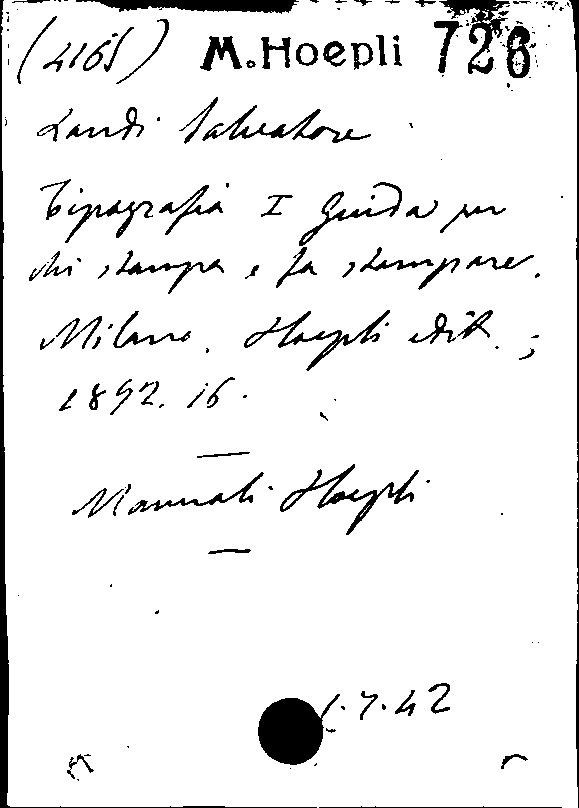 (4165) M. Hoepli 726
Landi Salvatore
Tipografia I Guida per
chi stampa e fa stampare.
Milano. Hoepli edit. ;
1892. 16.
Manuali Hoepli
7.42